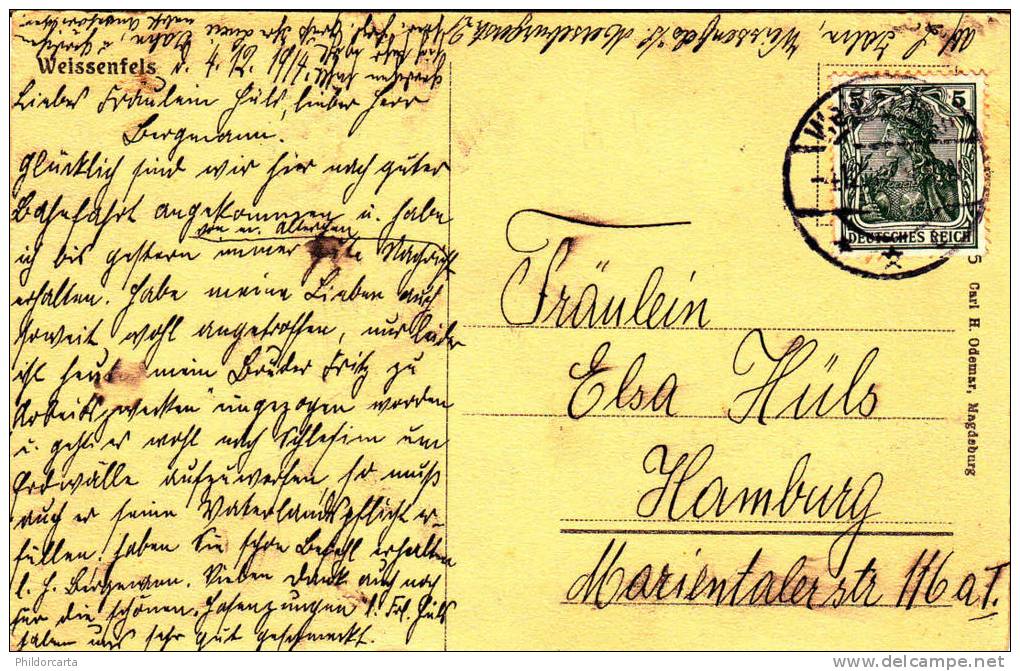 Weissenfels d. 4.12.1914.
Liebes Fräulein Hüls, lieber Herr
Bergmann.
Glücklich sind wir hier nach guter
Bahnfahrt angekommen u. habe
von m. Allerchen
ich bis gestern immer gute Nachricht
erhalten. Habe meine Lieben auch
soweit wohl angetroffen, nur leider
ist heute mein Bruder Fritz zu
Arbeitszwecken eingezogen worden
u. geht es wohl nach Schlesien um
Erdwälle aufzuwerfen, so muß
auch er seine Vaterlandspflicht er-
füllen. Haben Sie schon Befehl erhalten
l. H. Bergmann. Vielen Dank auch noch
für die schönen l. Frl. Hüls
haben uns sehr gut geschmeckt.
Abs. Dahn, Weissenfels a/S
5 5
DEUTSCHES REICH
Fräulein
Elsa Hüls
Hamburg
Marientalerstr 116 a I.
5 Carl H. Odemar, Magdeburg
Phildorcarta
www.delcampe.net